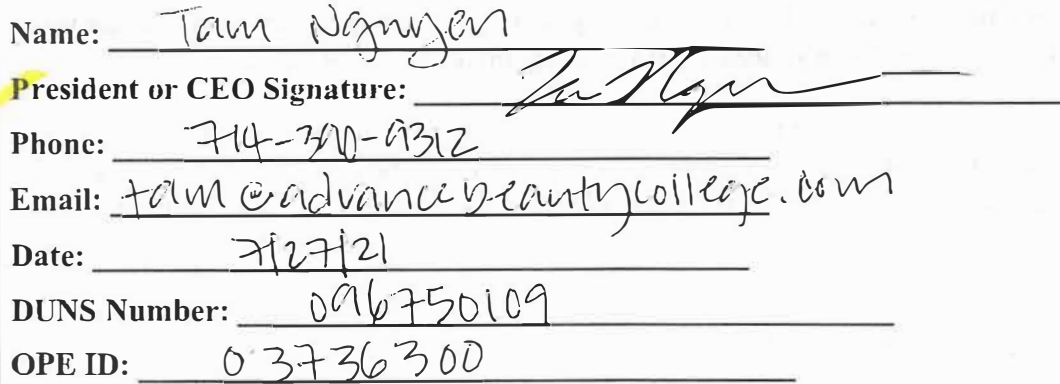 Name: Tam Nguyen
President or CEO Signature:
Phone:
Email: tam@advancebeautycollege.com
Date: 7/27/21
DUNS Number: 096750109
OPE ID: 03736300